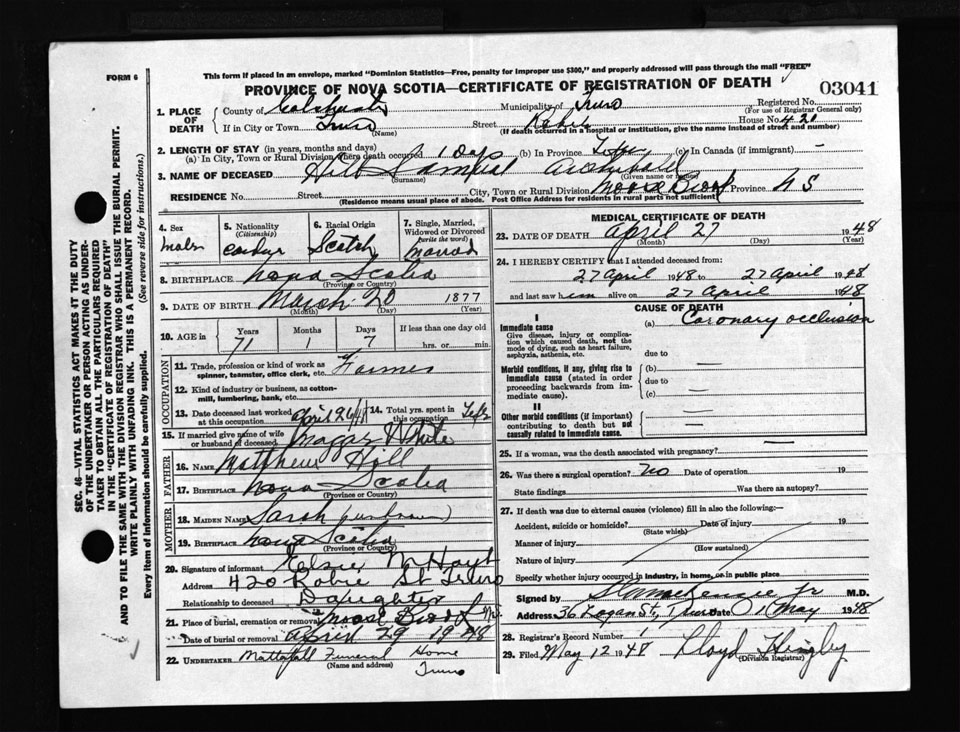 FORM 6
This form if placed in an envelope, marked "Dominion Statistics—Free, penalty for improper use $300," and properly addressed will pass through the mail "FREE"
PROVINCE OF NOVA SCOTIA—CERTIFICATE OF REGISTRATION OF DEATH
03041
1. PLACE OF DEATH
County of Colchester Municipality of Truro Registered No.
(For use of Registrar General only)
If in City or Town Truro Street Robie House No. 420
(Name) (If death occurred in a hospital or institution, give the name instead of street and number)
2. LENGTH OF STAY (in years, months and days)
(a) In City, Town or Rural Division where death occurred 1 Day (b) In Province Life (c) In Canada (if immigrant) -
3. NAME OF DECEASED Hill Samuel Archibald
(Surname) (Given name or names)
RESIDENCE No. Street City, Town or Rural Division Moose Brook Province N S
(Residence means usual place of abode. Post Office Address for residents in rural parts not sufficient)
4. Sex Male
5. Nationality (Citizenship)
6. Racial Origin Scotch
7. Single, Married, Widowed or Divorced (write the word) Married
8. BIRTHPLACE Nova Scotia
(Province or Country)
9. DATE OF BIRTH March 20 1877
(Month) (Day) (Year)
10. AGE in Years Months Days If less than one day old
71 1 7 hrs. or min.
OCCUPATION
11. Trade, profession or kind of work as spinner, teamster, office clerk, etc. Farmer
12. Kind of industry or business, as cotton-mill, lumbering, bank, etc.
13. Date deceased last worked at this occupation April 26/
14. Total yrs. spent in this occupation Life
15. If married give name of wife or husband of deceased White
FATHER
16. NAME Matthew Hill
17. BIRTHPLACE Nova Scotia
(Province or Country)
MOTHER
18. MAIDEN NAME Sarah (unknown)
19. BIRTHPLACE Nova Scotia
(Province or Country)
20. Signature of informant Elsie M Hoyt
Address 420 Robie St Truro
Relationship to deceased Daughter
21. Place of burial, cremation or removal Moose Brook N.S.
Date of burial or removal April 29 1948
22. UNDERTAKER Mattatall Funeral Home
(Name and address) Truro
MEDICAL CERTIFICATE OF DEATH
23. DATE OF DEATH April 27 1948
(Month) (Day) (Year)
24. I HEREBY CERTIFY that I attended deceased from:
27 April 1948 to 27 April 1948
and last saw him alive on 27 April 1948
CAUSE OF DEATH
I
Immediate cause (a) Coronary occlusion
Give disease, injury or complication which caused death, not the mode of dying, such as heart failure, asphyxia, asthenia, etc.
due to
Morbid conditions, if any, giving rise to immediate cause (stated in order proceeding backwards from immediate cause).
(b)
due to
(c)
II
Other morbid conditions (if important) contributing to death but not causally related to immediate cause.
25. If a woman, was the death associated with pregnancy?
26. Was there a surgical operation? No Date of operation 19
State findings Was there an autopsy?
27. If death was due to external causes (violence) fill in also the following:—
Accident, suicide or homicide? Date of injury 19
(State which)
Manner of injury
(How sustained)
Nature of injury
Specify whether injury occurred in industry, in home, or in public place
Signed by S H MacKenzie Jr M.D.
Address 36 Logan St, Truro Date 1 May 1948
28. Registrar's Record Number
29. Filed May 12 1948 Lloyd Hingley
(Division Registrar)
SEC. 46—VITAL STATISTICS ACT MAKES IT THE DUTY
OF THE UNDERTAKER OR PERSON ACTING AS UNDER-
TAKER TO OBTAIN ALL THE PARTICULARS REQUIRED
IN THE "CERTIFICATE OF REGISTRATION OF DEATH"
AND TO FILE THE SAME WITH THE DIVISION REGISTRAR WHO SHALL ISSUE THE BURIAL PERMIT.
WRITE PLAINLY WITH UNFADING INK. THIS IS A PERMANENT RECORD.
Every item of information should be carefully supplied. (See reverse side for instructions.)